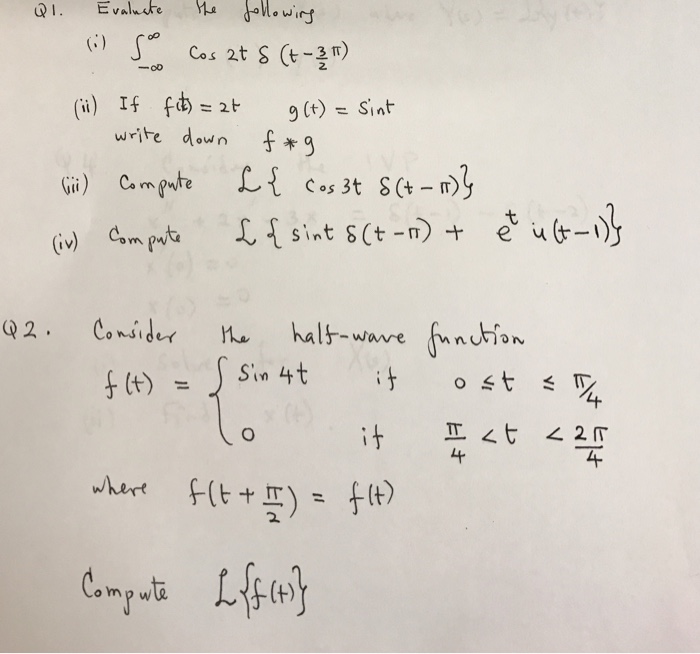 Q1. Evaluate the following
(i) ∫_{-∞}^{∞} Cos 2t δ (t - 3/2 π)
(ii) If f(t) = 2t g(t) = Sint
write down f * g
(iii) Compute L{ Cos 3t δ(t - π)}
(iv) Compute L{ sint δ(t - π) + e^t u(t-1)}
Q2. Consider the half-wave function
f(t) = { Sin 4t if 0 ≤ t ≤ π/4
0 if π/4 < t < 2π/4
where f(t + π/2) = f(t)
Compute L{f(t)}